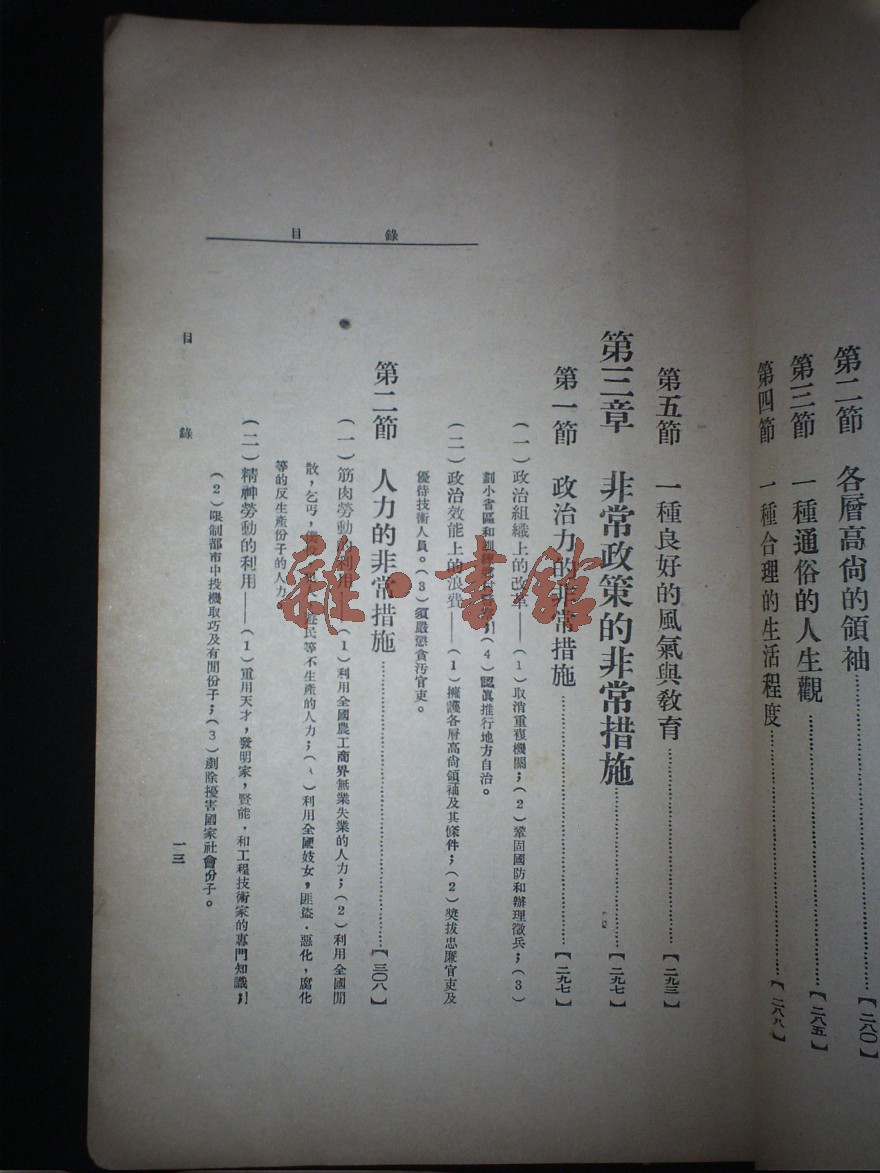 第二節 各層高尙的領袖……【二八〇】
第三節 一種通俗的人生觀……【二八五】
第四節 一種合理的生活程度……【二八八】
目錄
第五節 一種良好的風氣與敎育……【二九三】
第三章 非常政策的非常措施……【二九七】
第一節 政治力的非常措施……【二九七】
(一)政治組織上的改革——(1)取消重複機關;(2)鞏固國防和辦理徵兵;(3)
劃小省區和 (4)認眞推行地方自治。
(二)政治效能上的浪費——(1)擁護各層高尙領袖及其條件;(2)獎拔忠廉官吏及
優待技術人員。(3)須嚴懲貪汚官吏。
第二節 人力的非常措施……【三〇八】
(一)筋肉勞動的利用——(1)利用全國農工商界無業失業的人力;(2)利用全國閒
散,乞丐, 遊民等不生產的人力;( )利用全國妓女,匪盜.惡化,腐化
等的反生產份子的人力
(二)精神勞動的利用——(1)重用天才,發明家,賢能.和工程技術家的專門知識;
(2)限制都市中投機取巧及有閒份子;(3)剷除擾害國家社會份子。
目錄
一三
雜·書館